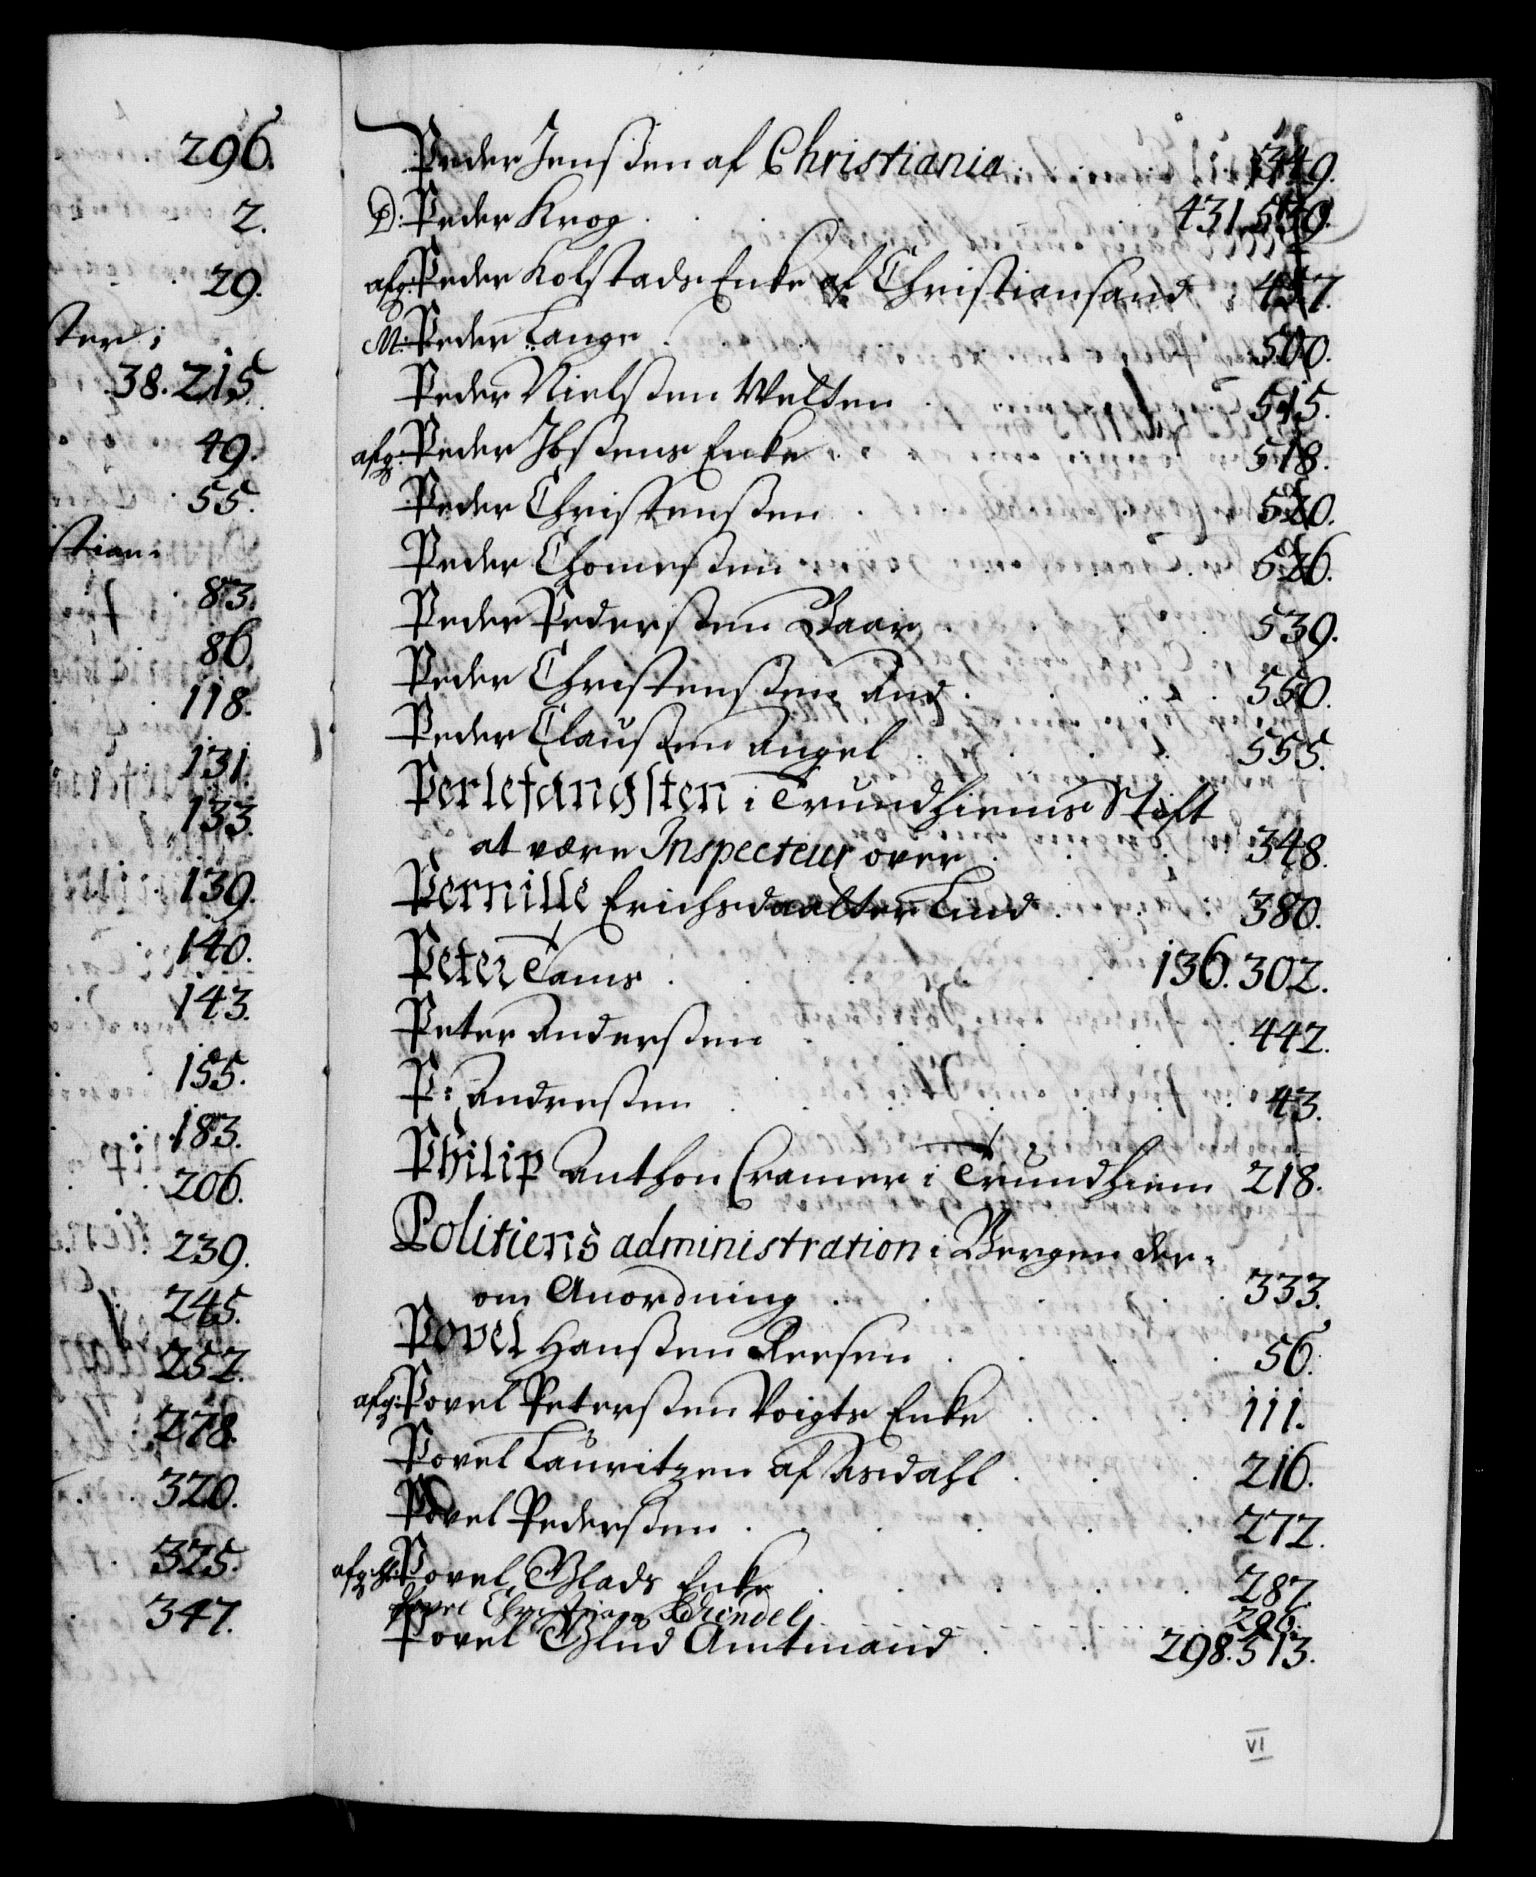 296.
2.
29.
ter:
38. 215
49.
55.
stian:
83.
86.
118.
131.
133.
139.
140.
143.
155.
183.
206.
239.
245.
252.
278.
320.
325.
347.
Peder Jenßen af Christiania 349.
D: Peder Krog 431. 530.
afg: Peder Kolstads Enke af Christiansand 457.
M: Peder Lange 500.
Peder Nielsßen Welten 515.
afg: Peder Ibßens Enke 518.
Peder Christenßen 520.
Peder Thomeßen 526.
Peder Pederßen 539.
Peder Christenßen 550.
Peder Claußen Angel 555.
Perlefangsten i Trundhiems Stift
at være Inspecteur over 348.
Pernille Erichsdaatter Lund 380.
Peter Tams 136. 302.
Peter Anderßen 442.
P: Andreßen 43.
Philip Anthon Cramer i Trundhiem 218.
Politiens administration i Bergen der-
om Anordning 333.
Povel Hanßen Reesen 56.
afg: Povel Peterßen Voigts Enke 111.
Povel Lauritzen af Asdahl 216.
Povel Pederßen 272.
afg: Hr: Povel Glads Enke 287.
Povel Christian Schindel 296.
Povel Glud Amtmand 298. 513.
VI